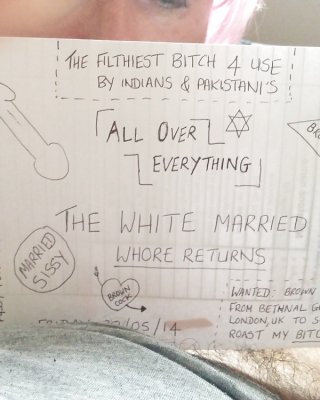 THE FILTHIEST BITCH 4 USE
BY INDIANS & PAKISTANI'S
ALL OVER
EVERYTHING
THE WHITE MARRIED
WHORE RETURNS
MARRIED
SISSY
BROWN
COCK
WANTED: BROWN
FROM BETHNAL
LONDON, UK TO
ROAST MY
/05/14